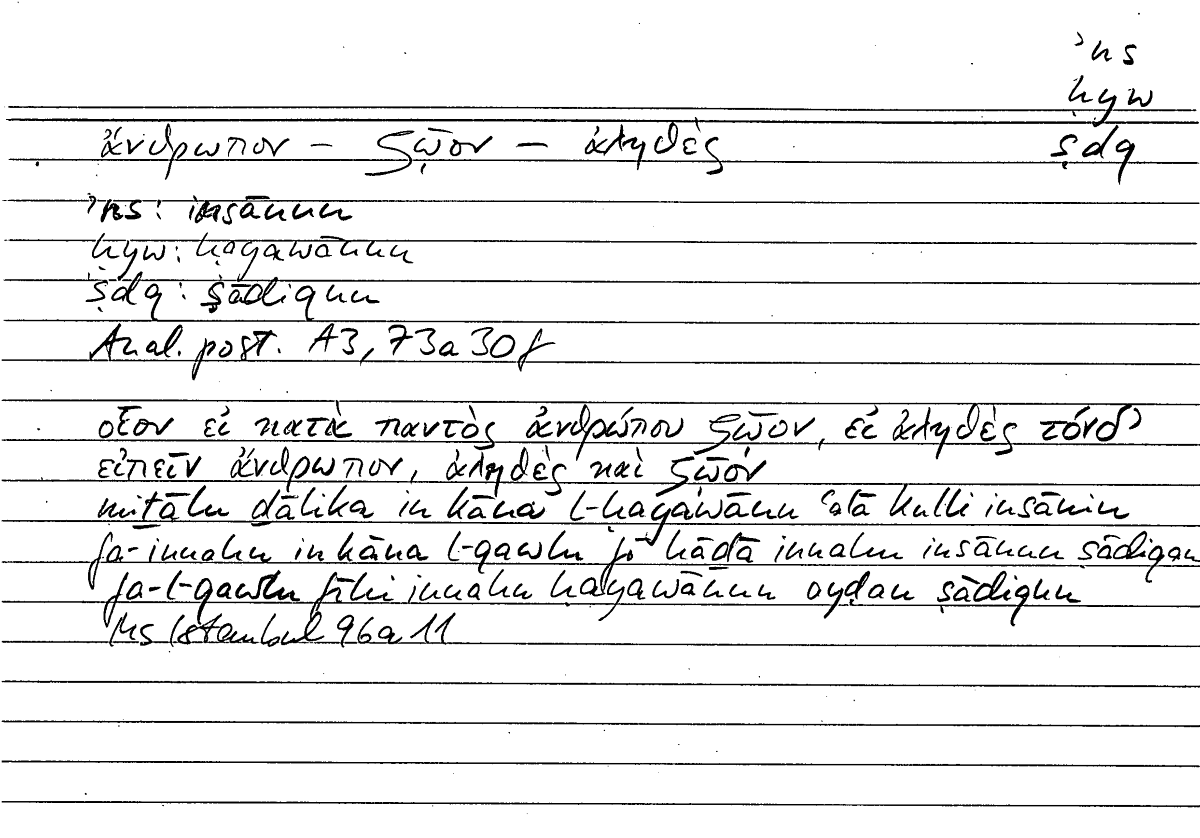 ʾns
ḥyw
ṣdq
ἄνθρωπον – ζῷον – ἀληθὲς
ʾns: insānun
ḥyw: ḥayawānun
ṣdq: ṣādiqun
Anal. post. A3, 73a30f
οἷον εἰ κατὰ παντὸς ἀνθρώπου ζῷον, εἰ ἀληθὲς τόνδ᾽
εἰπεῖν ἄνθρωπον, ἀληθὲς καὶ ζῷον
mitālu ḏālika in kāna l-ḥayawānu ʿalā kulli insānin
fa-innahu in kāna l-qawlu fī hāḏā innahu insānun ṣādiqan
fa-l-qawlu fīhi innahu ḥayawānun ayḍan ṣādiqun
Ms Istanbul 96a11